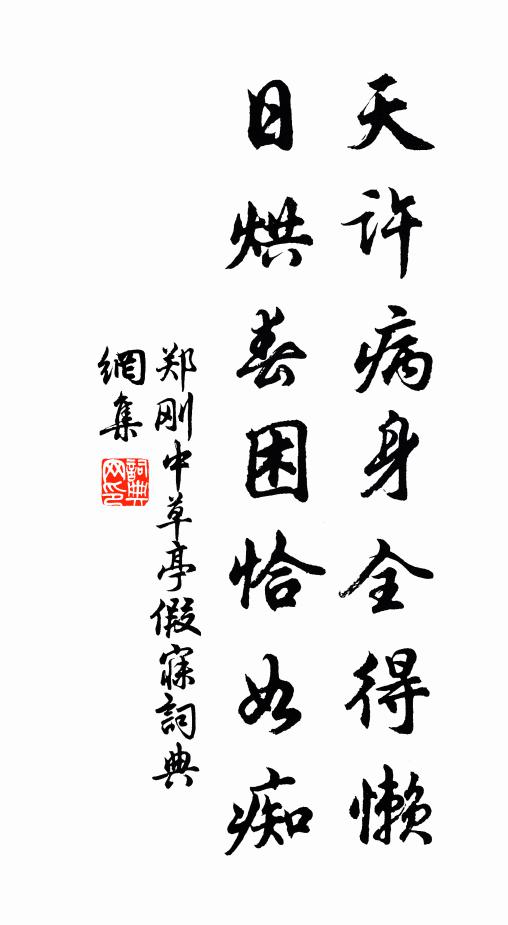 天许病身全得懒
日烘春困恰如痴
郑刚中草亭假寐詞典
網集
詞典网印